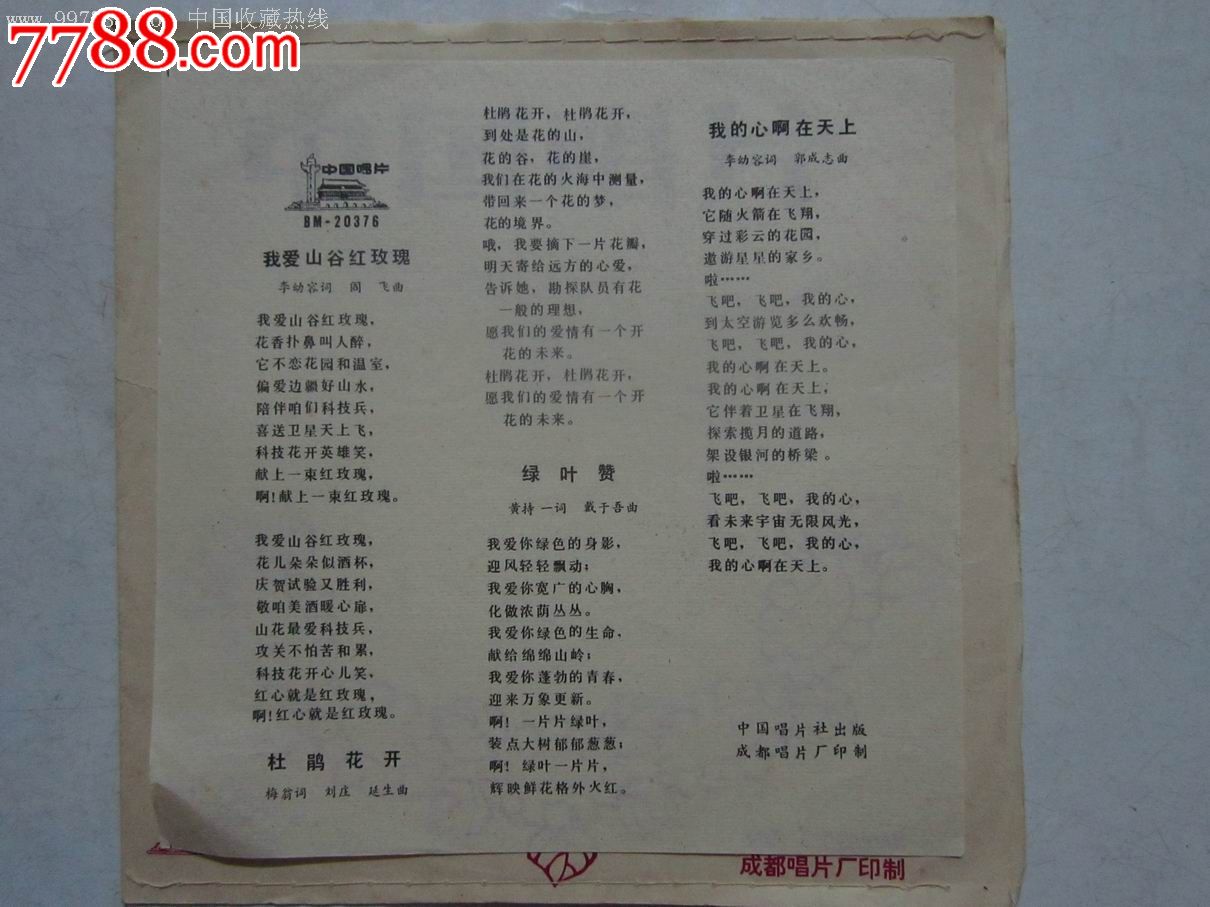 中国收藏热线
7788.com
中国唱片
BM-20376
我爱山谷红玫瑰
李幼容词 阎 飞曲
我爱山谷红玫瑰，
花香扑鼻叫人醉，
它不恋花园和温室，
偏爱边疆好山水，
陪伴咱们科技兵，
喜送卫星天上飞，
科技花开英雄笑，
献上一束红玫瑰，
啊！献上一束红玫瑰。
我爱山谷红玫瑰，
花儿朵朵似酒杯，
庆贺试验又胜利，
敬咱美酒暖心扉，
山花最爱科技兵，
攻关不怕苦和累，
科技花开心儿笑，
红心就是红玫瑰，
啊！红心就是红玫瑰。
杜鹃花开
梅翁词 刘庄 延生曲
杜鹃花开，杜鹃花开，
到处是花的山，
花的谷，花的崖，
我们在花的火海中测量，
带回来一个花的梦，
花的境界。
哦，我要摘下一片花瓣，
明天寄给远方的心爱，
告诉她，勘探队员有花
一般的理想，
愿我们的爱情有一个开
花的未来。
杜鹃花开，杜鹃花开，
愿我们的爱情有一个开
花的未来。
绿叶赞
黄持一词 戴于吾曲
我爱你绿色的身影，
迎风轻轻飘动；
我爱你宽广的心胸，
化做浓荫丛丛。
我爱你绿色的生命，
献给绵绵山岭；
我爱你蓬勃的青春，
迎来万象更新。
啊！一片片绿叶，
装点大树郁郁葱葱；
啊！绿叶一片片，
辉映鲜花格外火红。
我的心啊在天上
李幼容词 郭成志曲
我的心啊在天上，
它随火箭在飞翔，
穿过彩云的花园，
遨游星星的家乡。
啦……
飞吧，飞吧，我的心，
到太空游览多么欢畅，
飞吧，飞吧，我的心，
我的心啊在天上。
我的心啊在天上，
它伴着卫星在飞翔，
探索揽月的道路，
架设银河的桥梁。
啦……
飞吧，飞吧，我的心，
看未来宇宙无限风光，
飞吧，飞吧，我的心，
我的心啊在天上。
中国唱片社出版
成都唱片厂印制
成都唱片厂印制